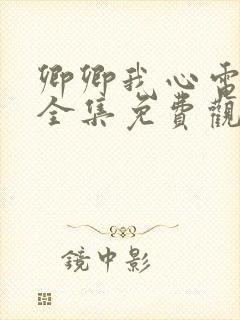 卿卿我心電
全集免費觀
鏡中影